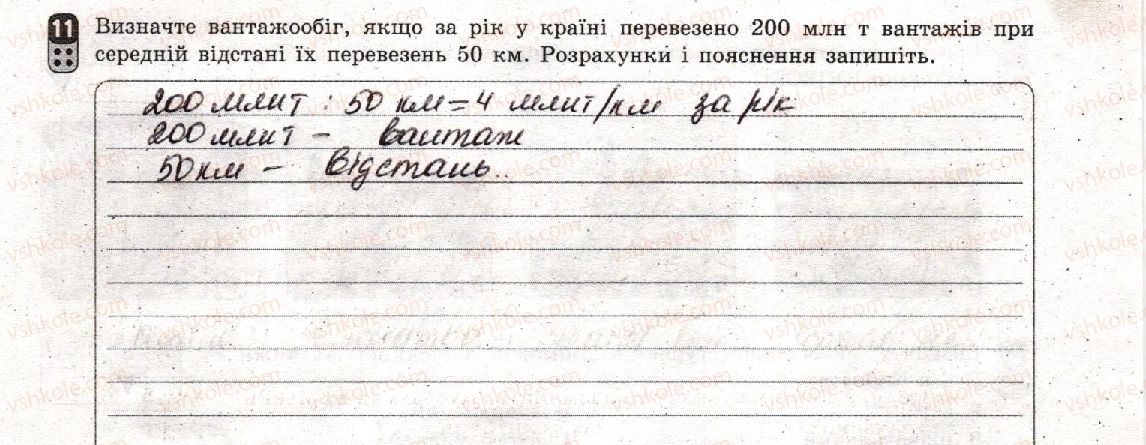 11 Визначте вантажообіг, якщо за рік у країні перевезено 200 млн т вантажів при
середній відстані їх перевезень 50 км. Розрахунки і пояснення запишіть.
200 млн т : 50 км = 4 млн т/км за рік
200 млн т - вантаж
50 км - відстань..